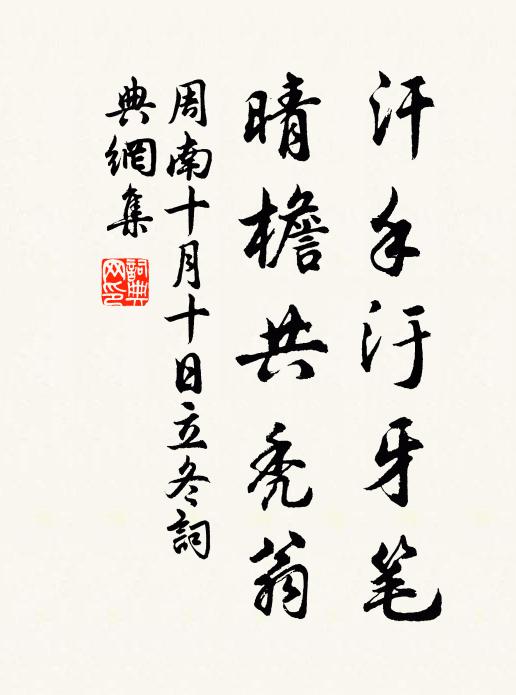 汗手汙牙笔
晴檐共秃翁
周南十月十日立冬詞
典網集
詞典
网印